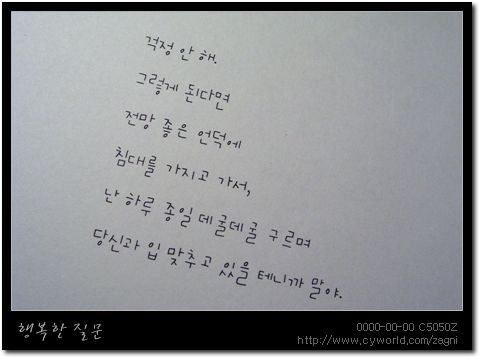 걱정 안 해.
그렇게 된다면
전망 좋은 언덕에
침대를 가지고 가서,
난 하루 종일 데굴데굴 구르며
당신과 입 맞추고 있을 테니까 말야.
행복한 질문
0000-00-00 C5050Z
http://www.cyworld.com/zagni